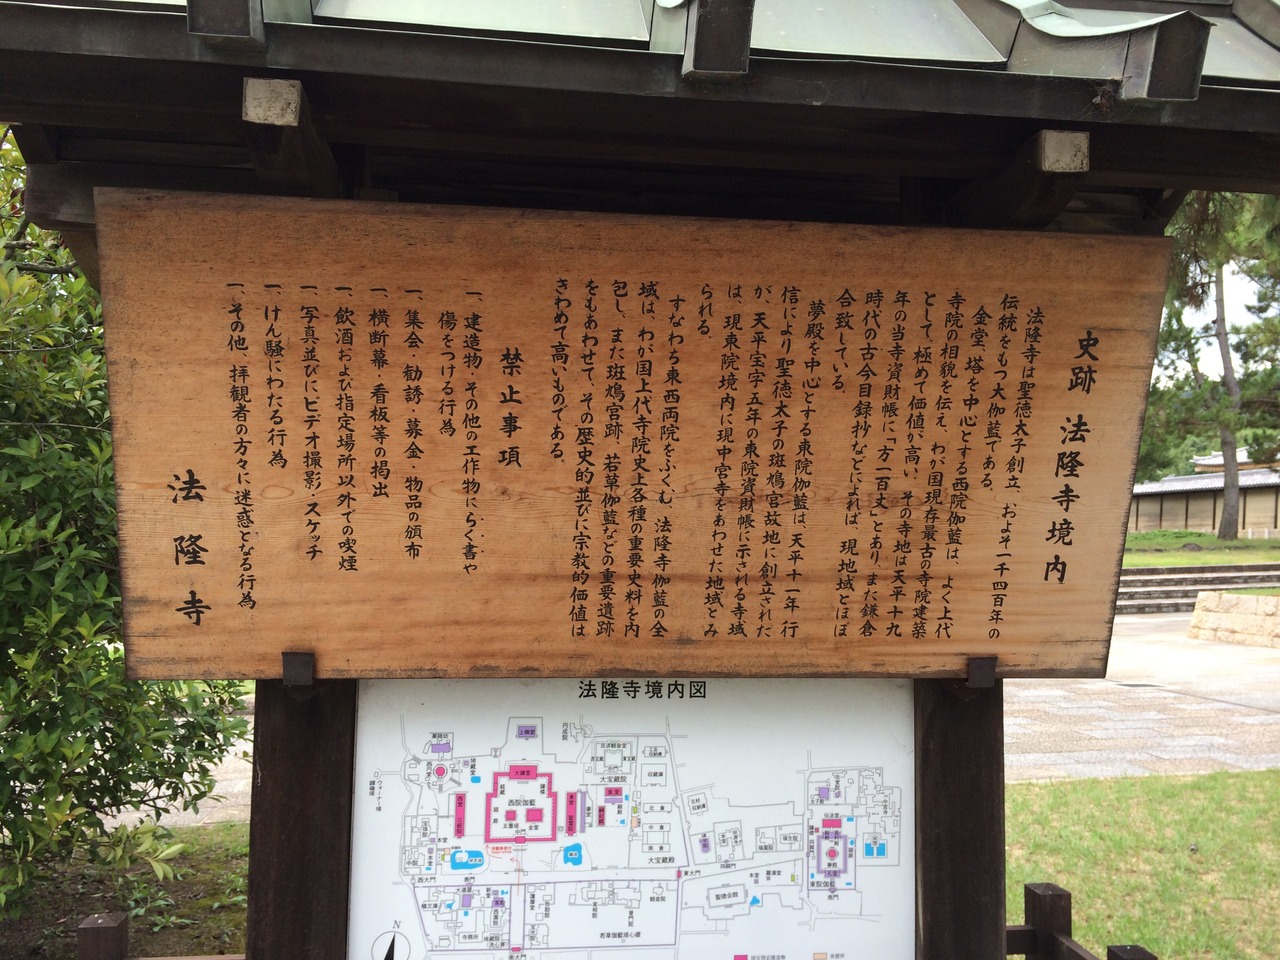 史跡 法隆寺境内
法隆寺は聖徳太子創立、およそ一千四百年の
伝統をもつ大伽藍である。
金堂、塔を中心とする西院伽藍は、よく上代
寺院の相貌を伝え、わが国現存最古の寺院建築
として、極めて価値が高い。その寺地は天平十九
年の当寺資財帳に「方一百丈」とあり、また鎌倉
時代の古今目録抄などによれば、現地域とほぼ
合致している。
夢殿を中心とする東院伽藍は、天平十一年行
信により聖徳太子の斑鳩宮故地に創立された
が、天平宝字五年の東院資財帳に示される寺域
は、現東院境内に現中宮寺をあわせた地域とみ
られる。
すなわち東西両院をふくむ、法隆寺伽藍の全
域は、わが国上代寺院史上各種の重要史料を内
包し、また斑鳩宮跡、若草伽藍などの重要遺跡
をもあわせて、その歴史的並びに宗教的価値は
きわめて高いものである。
禁止事項
一、建造物・その他の工作物にらく書や
傷をつける行為
一、集会・勧誘・募金・物品の頒布
一、横断幕・看板等の掲出
一、飲酒および指定場所以外での喫煙
一、写真並びにビデオ撮影・スケッチ
一、けん騒にわたる行為
一、その他、拝観者の方々に迷惑となる行為
法隆寺
法隆寺境内図
上御堂
薬師坊
西円堂
地蔵堂
大講堂
西院伽藍
五重塔
金堂
中門
大宝蔵院
百済観音堂
収蔵庫
北倉
中倉
南倉
大宝蔵殿
西大門
東大門
観音院
聖徳会館
若草伽藍塔心礎
寺務所
南大門
東院伽藍
夢殿
南門
中宮寺
N